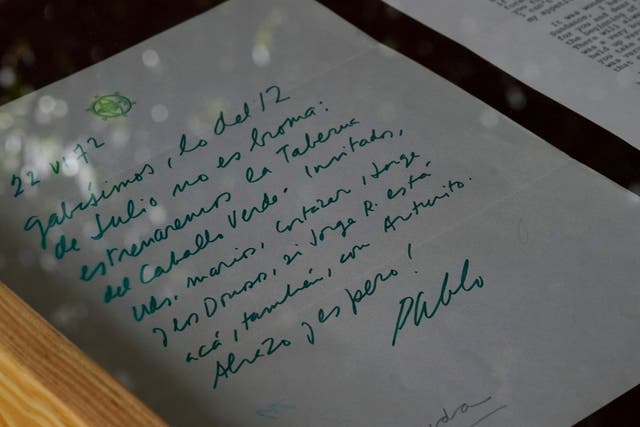 22 VI 72
Gabísimos, lo del 12
de Julio no es broma:
estrenaremos la Taberna
del Caballo Verde. Invitados,
Uds. marios, Cortázar, Jorge
y los Donoso, si Jorge R. está
acá, también, con Arturito.
Abrazo y espero!
Pablo